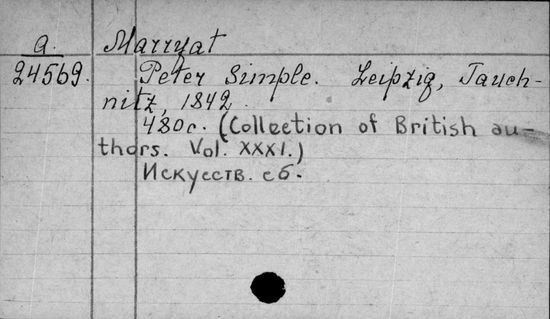 a. Marryat
24569. Peter Simple. Leipzig, Tauch-
nitz, 1842.
480 с. (Collection of British au-
thors. Vol. XXXI.)
Искусств. сб.